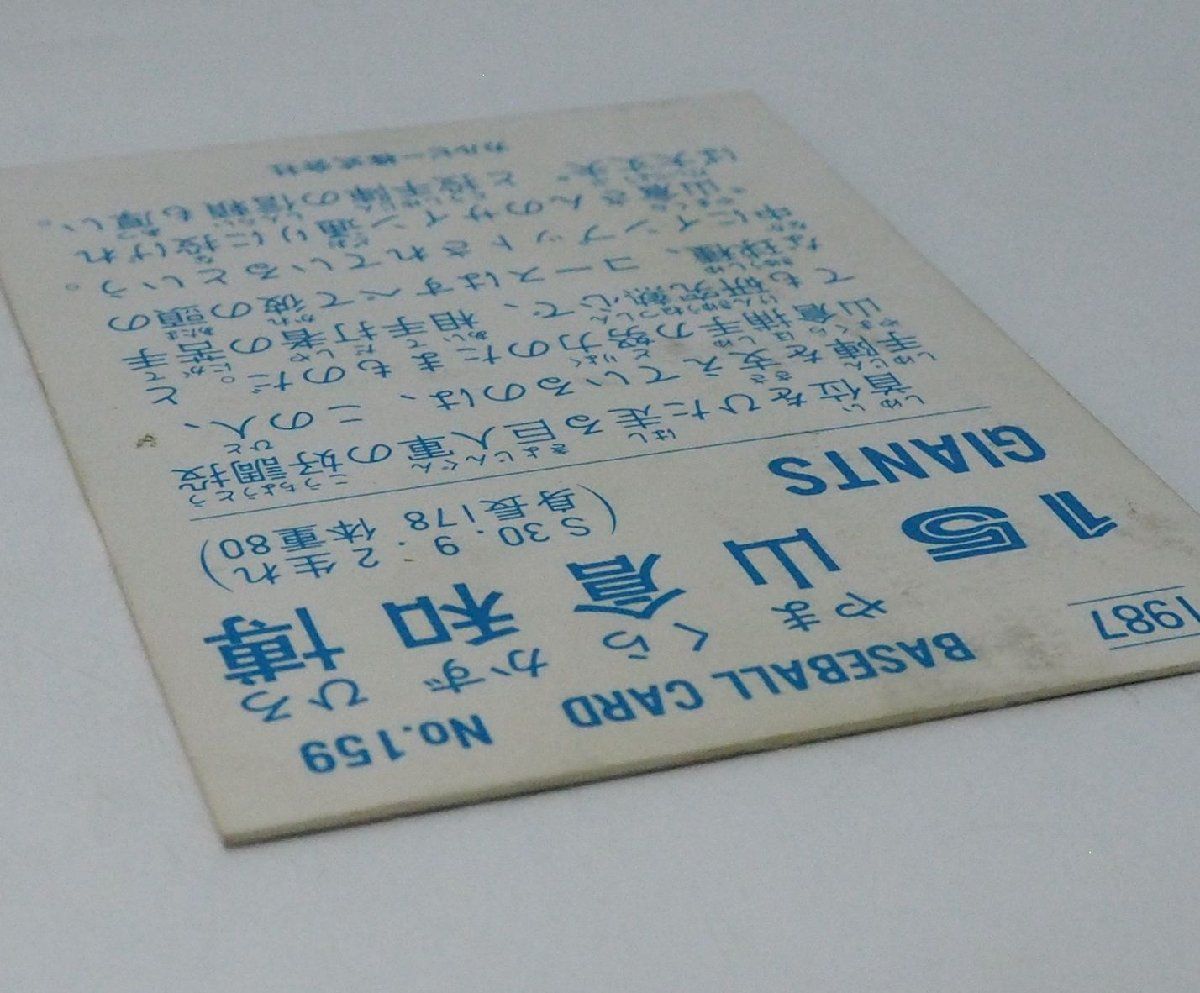 1987 BASEBALL CARD No.159
やま くら かず ひろ
15 山倉和博
GIANTS
(S30・9・2生れ
身長178 体重80)
首位をひた走る巨人軍の好調投
手陣を支えているのは、この人、
山倉捕手の努力のたまものだ。と
ても研究熱心で、相手打者の苦手
な球種、コースはすべて彼の頭の
中にインプットされているという。
“山倉さんのサイン通りに投げれ
ば大丈夫”と投手陣の信頼も厚い。
カルビー株式会社